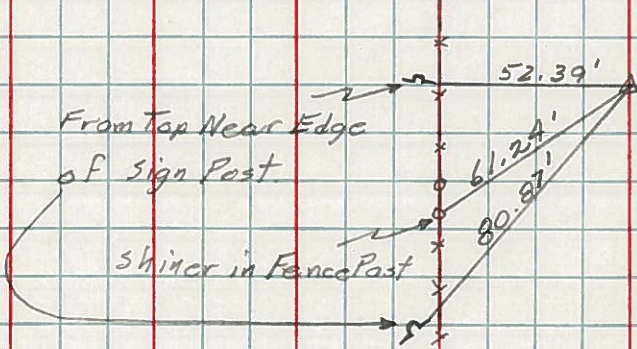 52.39'
From Top Near Edge
of Sign Post.
61.24'
80.87'
Shiner in Fence Post